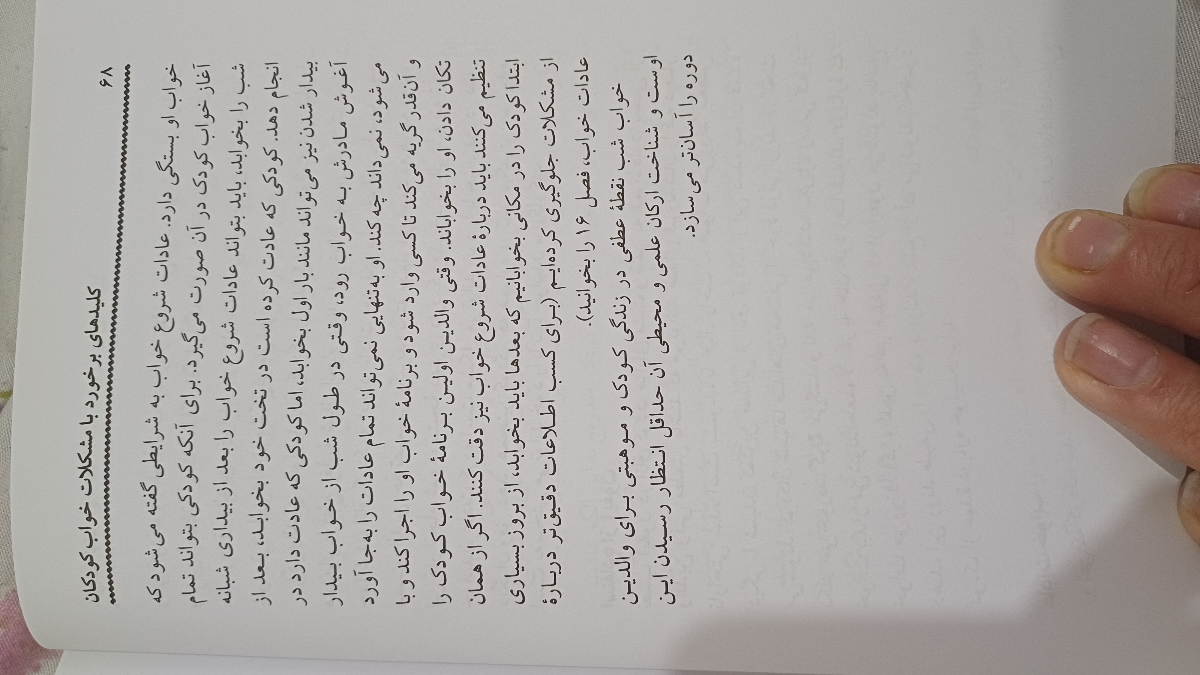 ۶۸
کلیدهای برخورد با مشکلات خواب کودکان
خواب او بستگی دارد. عادات شروع خواب به شرایطی گفته می‌شود که
آغاز خواب کودک در آن صورت می‌گیرد. برای آنکه کودکی بتواند تمام
شب را بخوابد، باید بتواند عادات شروع خواب را بعد از بیداری شبانه
انجام دهد. کودکی که عادت کرده است در تخت خود بخوابد، بعد از
بیدار شدن نیز می‌تواند مانند بار اول بخوابد، اما کودکی که عادت دارد در
آغوش مادرش به خواب رود، وقتی در طول شب از خواب بیدار
می‌شود، نمی‌داند چه کند. او به‌تنهایی نمی‌تواند تمام عادات را به‌جا آورد
و آن‌قدر گریه می‌کند تا کسی وارد شود و برنامهٔ خواب او را اجرا کند و با
تکان دادن، او را بخواباند. وقتی والدین اولین برنامهٔ خواب کودک را
تنظیم می‌کنند باید دربارهٔ عادات شروع خواب نیز دقت کنند. اگر از همان
ابتدا کودک را در مکانی بخوابانیم که بعدها باید بخوابد، از بروز بسیاری
از مشکلات جلوگیری کرده‌ایم (برای کسب اطلاعات دقیق‌تر دربارهٔ
عادات خواب، فصل ۱۶ را بخوانید).
خواب شب نقطهٔ عطفی در زندگی کودک و موهبتی برای والدین
اوست و شناخت ارکان علمی و محیطی آن حداقل انتظار رسیدن این
دوره را آسان‌تر می‌سازد.